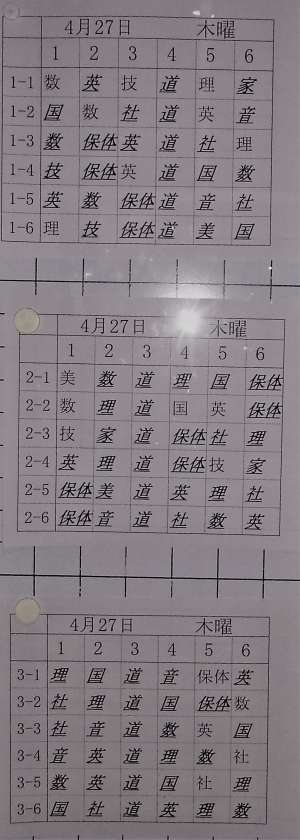 4月27日 木曜
1 2 3 4 5 6
1-1 数 英 技 道 理 家
1-2 国 数 社 道 英 音
1-3 数 保体 英 道 社 理
1-4 技 保体 英 道 国 数
1-5 英 数 保体 道 音 社
1-6 理 技 保体 道 美 国
4月27日 木曜
1 2 3 4 5 6
2-1 美 数 道 理 国 保体
2-2 数 理 道 国 英 保体
2-3 技 家 道 保体 社 理
2-4 英 理 道 保体 技 家
2-5 保体 美 道 英 理 社
2-6 保体 音 道 社 数 英
4月27日 木曜
1 2 3 4 5 6
3-1 理 国 道 音 保体 英
3-2 社 理 道 国 保体 数
3-3 社 音 道 数 英 国
3-4 音 英 道 理 数 社
3-5 数 英 道 国 社 理
3-6 国 社 道 英 理 数